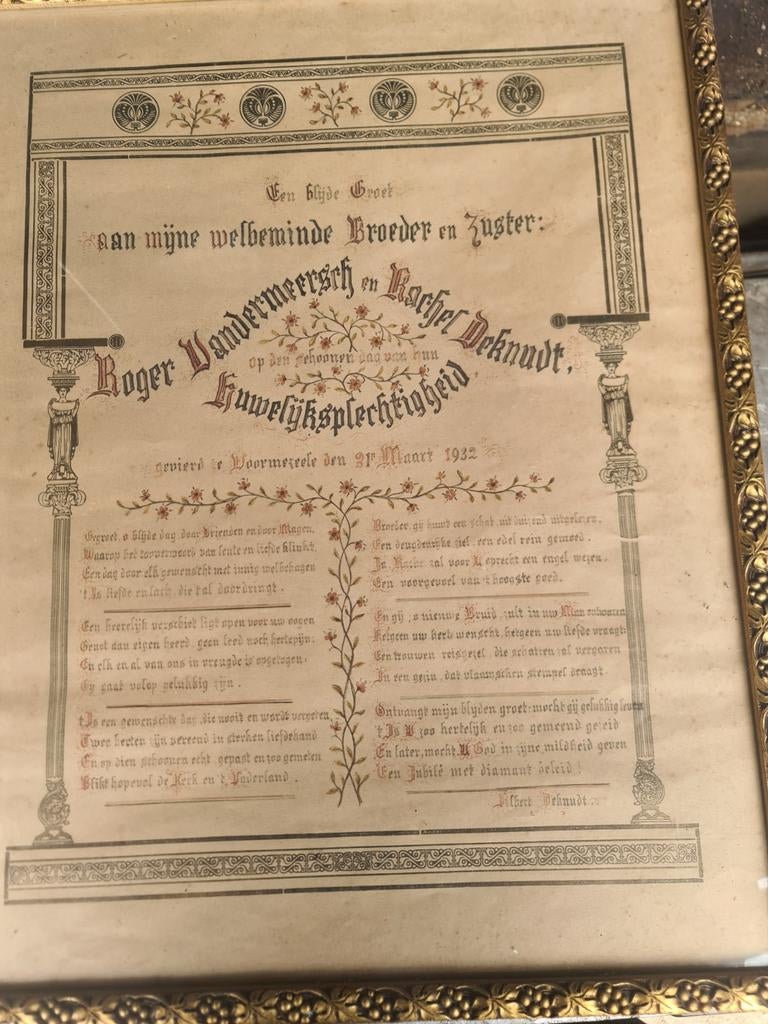 Een blijde Groet
aan mijne welbeminde Broeder en Zuster:
Roger Vandermeersch en Rachel Deknudt,
op den schoonen dag van hun
Huwelijksplechtigheid
gevierd te Voormezeele den 31n Maart 1932
Gegroet, o blijde dag, door Vrienden en door Magen,
Waarop het tooverwoord van leute en liefde klinkt.
Een dag door elk gewenscht met innig welbehagen
't Is liefde en lach, die t'al doordringt.
Een heerelijk verschiet ligt open voor uw oogen
Gerust aan eigen heerd, geen leed noch hertepijn:
En elk en al van ons in vreugde is opgetogen.
Gij gaat volop gelukkig zijn.
't Is een gewenschte dag, die nooit en wordt vergeten,
Twee herten zijn vereend in sterken liefdeband
En op dien schoonen echt, gepast en zoo gemeten
Blikt hopevol de Kerk en 't Vaderland.
Broeder, gij huwt een schat, uit duizend uitgelezen,
Een deugdenrijke ziel, een edel rein gemoed.
Ja, Rachel zal voor U oprecht een engel wezen,
Een voorgevoel van 't hoogste goed.
En gij, o nieuwe Bruid, zult in uw Man ontwaren
Hetgeen uw hert wenscht, hetgeen uw liefde vraagt:
Een trouwen reisgezel, die schatten zal vergaren
In een gezin, dat vlaamschen stempel draagt.
Ontvangt mijn blijden groet: mocht gij gelukkig leven
't Is U zoo hertelijk en zoo gemeend gezeid
En later, mocht U God in zijne mildheid geven
Een Jubilé met diamant beleid!
Albert Deknudt